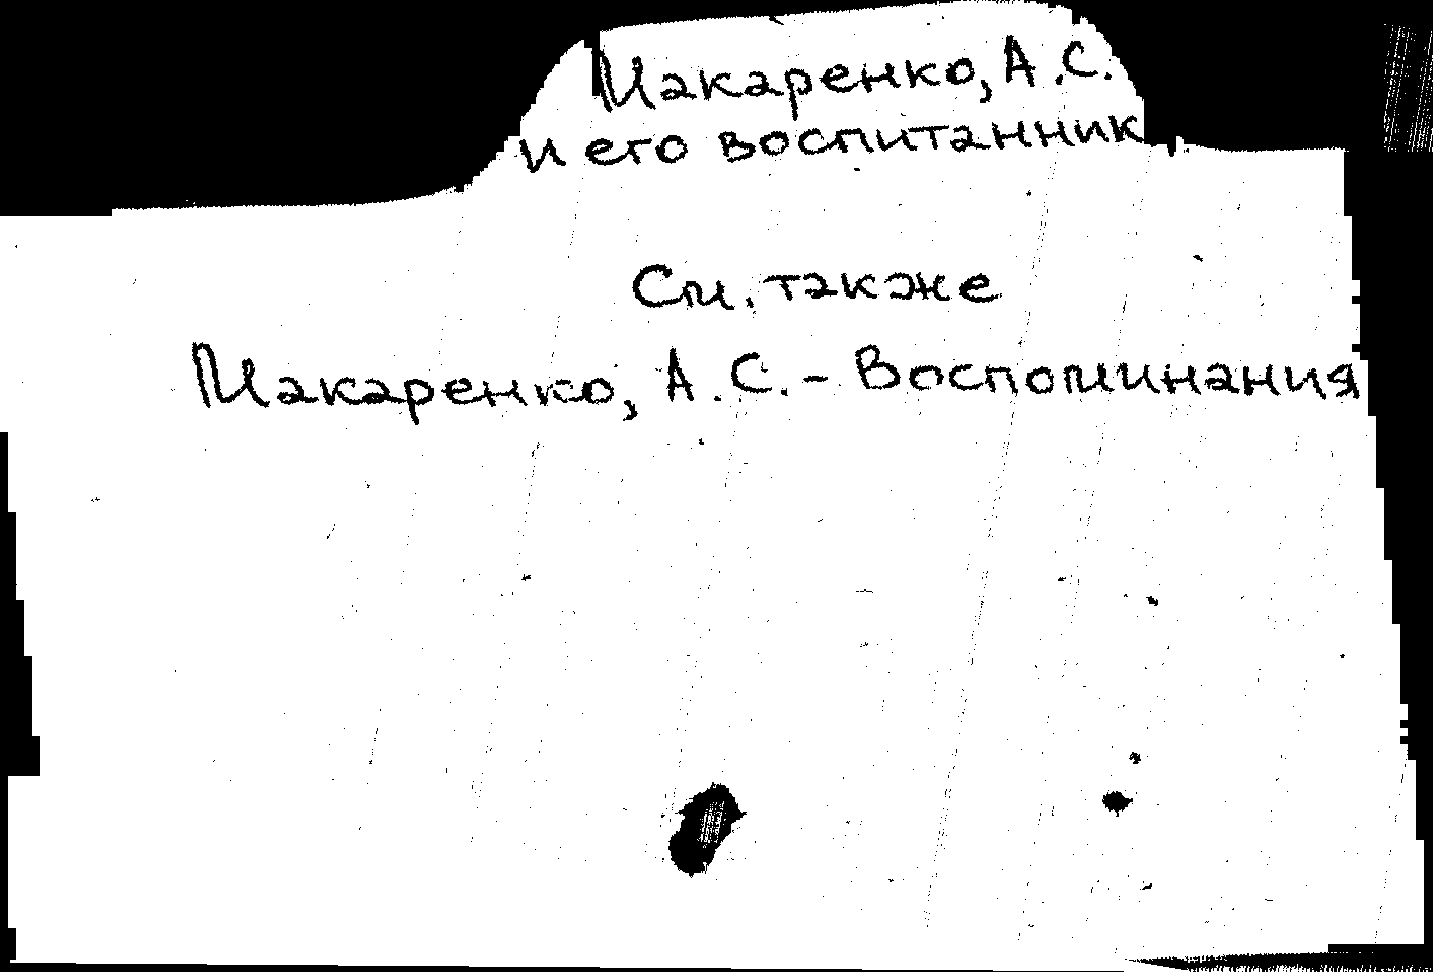 Макаренко, А.С.
и его воспитанник
См. также
Макаренко, А.С. - Воспоминания